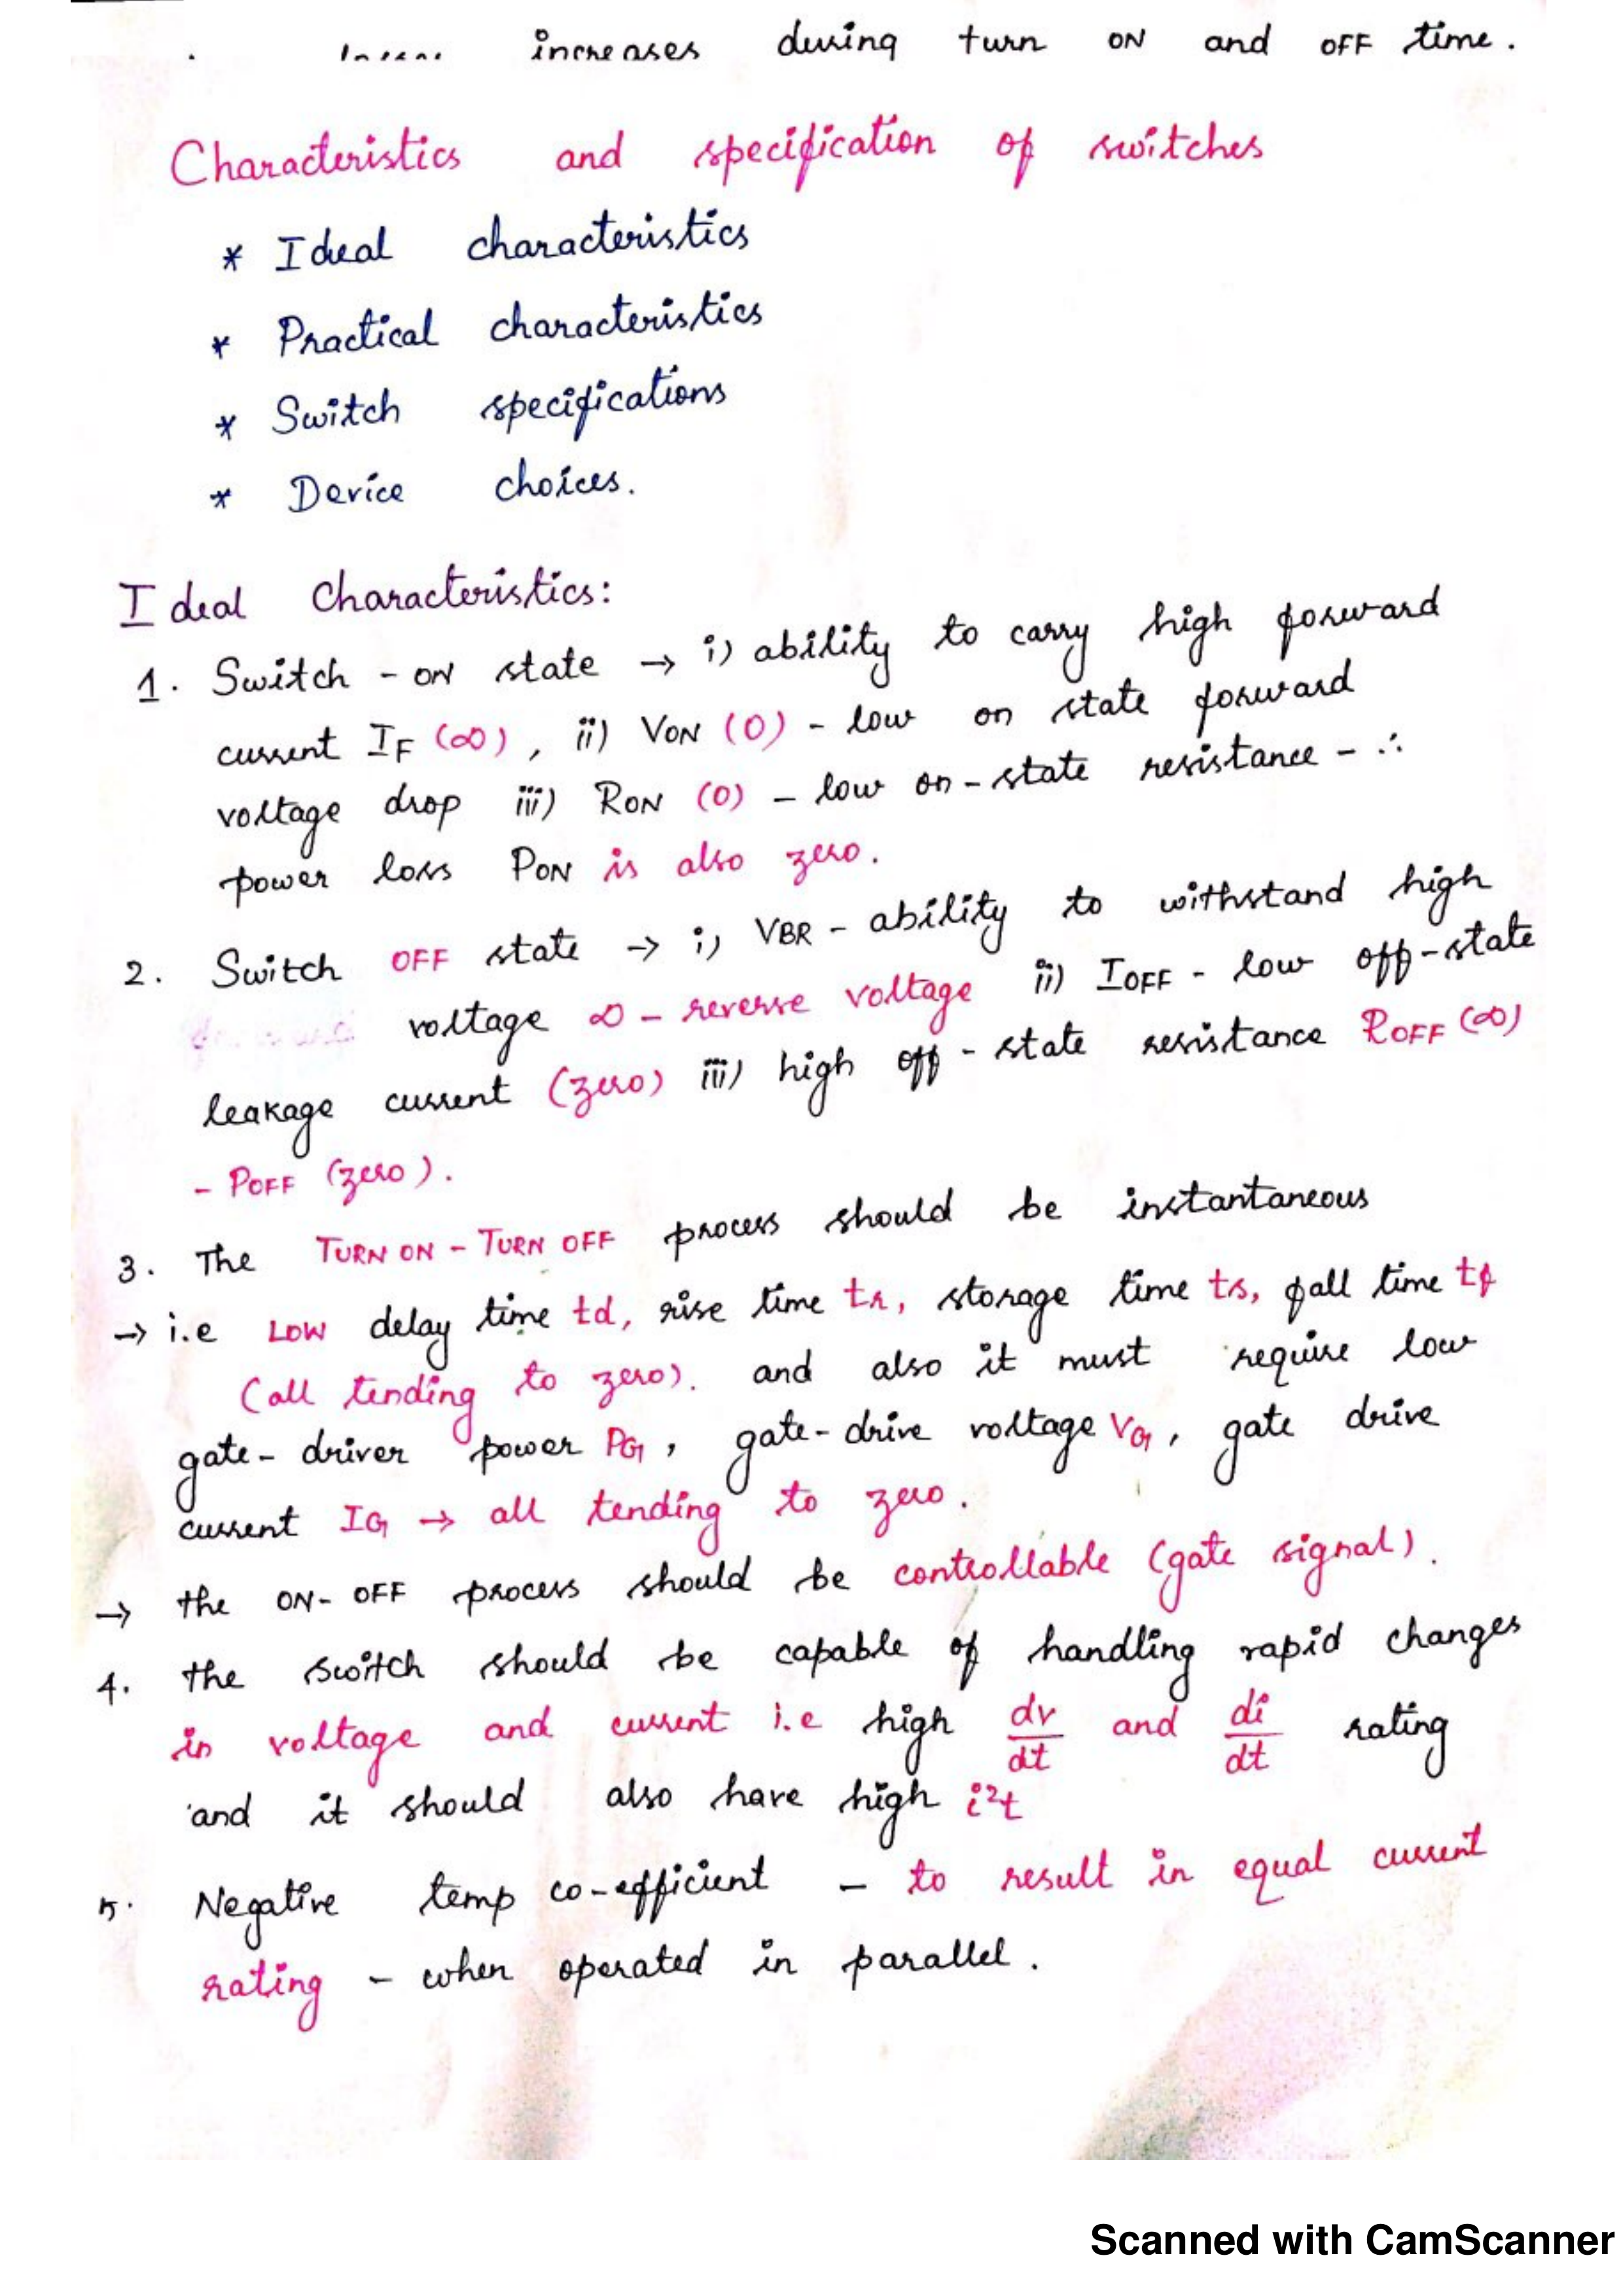 increases during turn ON and OFF time.
Characteristics and specification of switches
* Ideal characteristics
* Practical characteristics
* Switch specifications
* Device choices.
Ideal Characteristics:
1. Switch - ON state → i) ability to carry high forward
current IF (∞), ii) VON (0) - low on state forward
voltage drop iii) RON (0) - low on-state resistance - ∴
power loss PON is also zero.
2. Switch OFF state → i) VBR - ability to withstand high
voltage ∞ - reverse voltage ii) IOFF - low off-state
leakage current (zero) iii) high off-state resistance ROFF (∞)
- POFF (zero).
3. The TURN ON - TURN OFF process should be instantaneous
→ i.e LOW delay time td, rise time tr, storage time ts, fall time tf
(all tending to zero). and also it must require low
gate-driver power PG, gate-drive voltage VG, gate drive
current IG → all tending to zero.
→ the ON-OFF process should be controllable (gate signal).
4. the switch should be capable of handling rapid changes
in voltage and current i.e high dv/dt and di/dt rating
and it should also have high i²t
5. Negative temp co-efficient - to result in equal current
rating - when operated in parallel.
Scanned with CamScanner